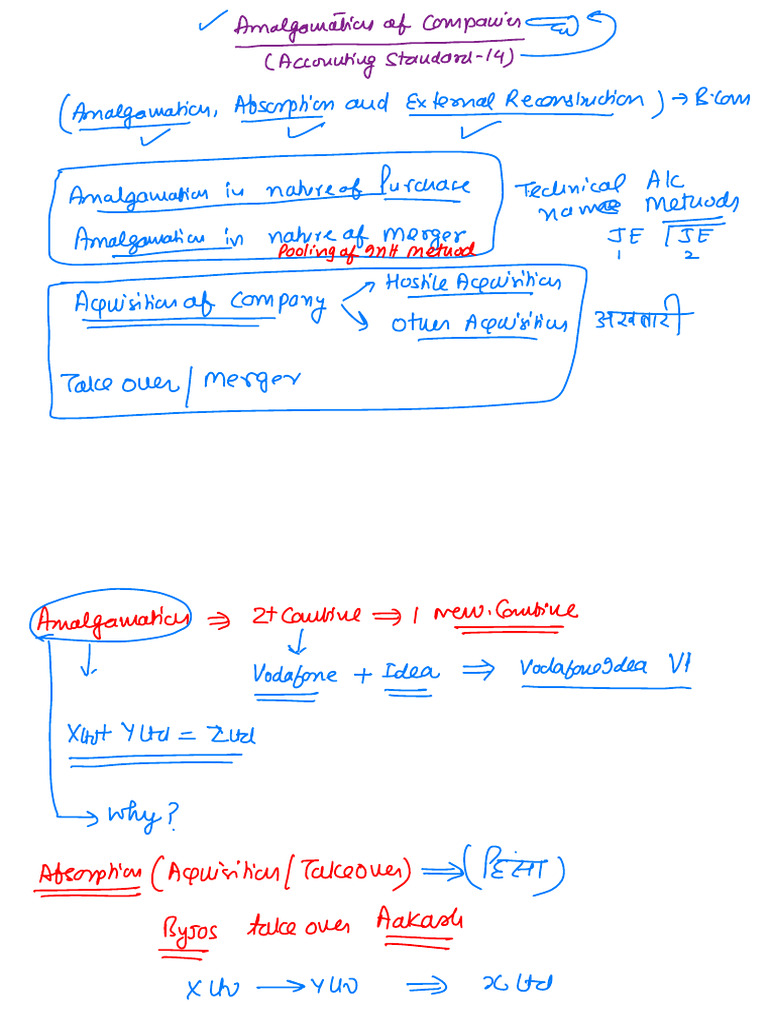 Amalgamation of Companies
(Accounting Standard-14)
(Amalgamation, Absorption and External Reconstruction) → B.Com
Amalgamation in nature of Purchase
Amalgamation in nature of merger
Pooling of Int Method
Technical A/c
names Methods
JE JE
1 2
Acquisition of Company
Hostile Acquisition
Other Acquisition
अखबारी
Take over / merger
Amalgamation ⇒ 2+ Combine ⇒ 1 new. Combine
Vodafone + Idea ⇒ Vodafone Idea VI
X Ltd + Y Ltd = Z Ltd
→ Why?
Absorption (Acquisition / Takeover) ⇒ (हिंसा)
Byjos take over Aakash
X Ltd → Y Ltd ⇒ X Ltd